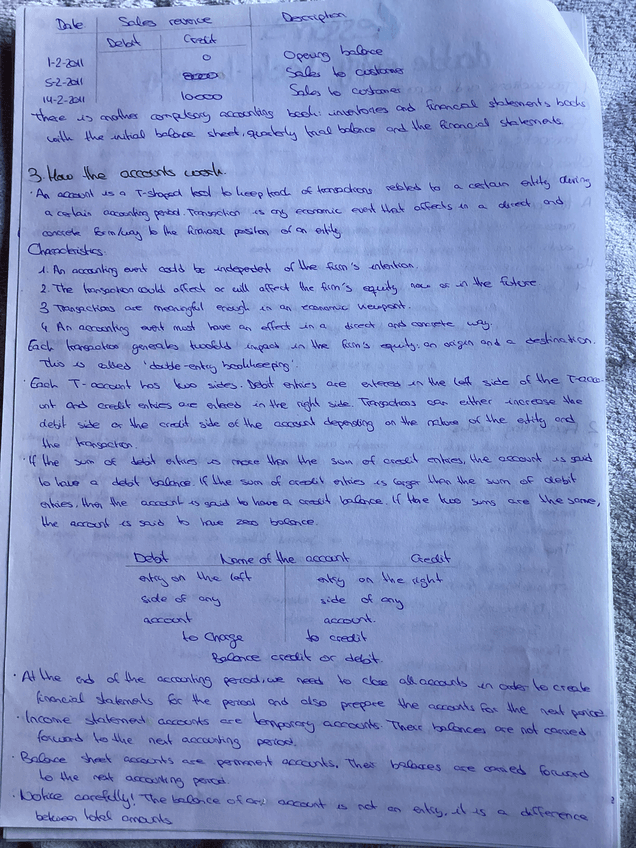 Date Sales revenue Description
Debit Credit
1-2-2011 0 Opening balance
5-2-2011 8000 Sales to customer
14-2-2011 10000 Sales to customer
There is another compulsory accounting book: inventories and financial statements books
with the initial balance sheet, quarterly trial balance and the financial statements.
3. How the accounts work.
· An account is a T-shaped tool to keep track of transactions related to a certain entity during
a certain accounting period. Transaction is any economic event that affects in a direct and
concrete form/way to the financial position of an entity.
Characteristics:
1. An accounting event could be independent of the firm's intention.
2. The transaction could affect or will affect the firm's equity now or in the future
3 Transactions are meaningful enough in an economic viewpoint.
4 An accounting event must have an effect in a direct and concrete way.
Each transaction generates twofold impact in the firm's equity: an origin and a destination.
This is called 'double-entry bookkeeping'.
· Each T-account has two sides. Debit entries are entered in the left side of the T-acco-
unt and credit entries are entered in the right side. Transactions can either increase the
debit side or the credit side of the account depending on the nature of the entity and
the transaction.
· If the sum of debit entries is more than the sum of credit entries, the account is said
to have a debit balance. If the sum of credit entries is larger than the sum of debit
entries, then the account is said to have a credit balance. If the two sums are the same,
the account is said to have zero balance.
Debit Name of the account Credit
entry on the left entry on the right
side of any side of any
account account.
to charge to credit
Balance credit or debit.
· At the end of the accounting period, we need to close all accounts in order to create
financial statements for the period and also prepare the accounts for the next period.
· Income statement accounts are temporary accounts. Their balances are not carried
forward to the next accounting period.
· Balance sheet accounts are permanent accounts. Their balances are carried forward
to the next accounting period.
· Notice carefully! The balance of an account is not an entry, it is a difference
between total amounts